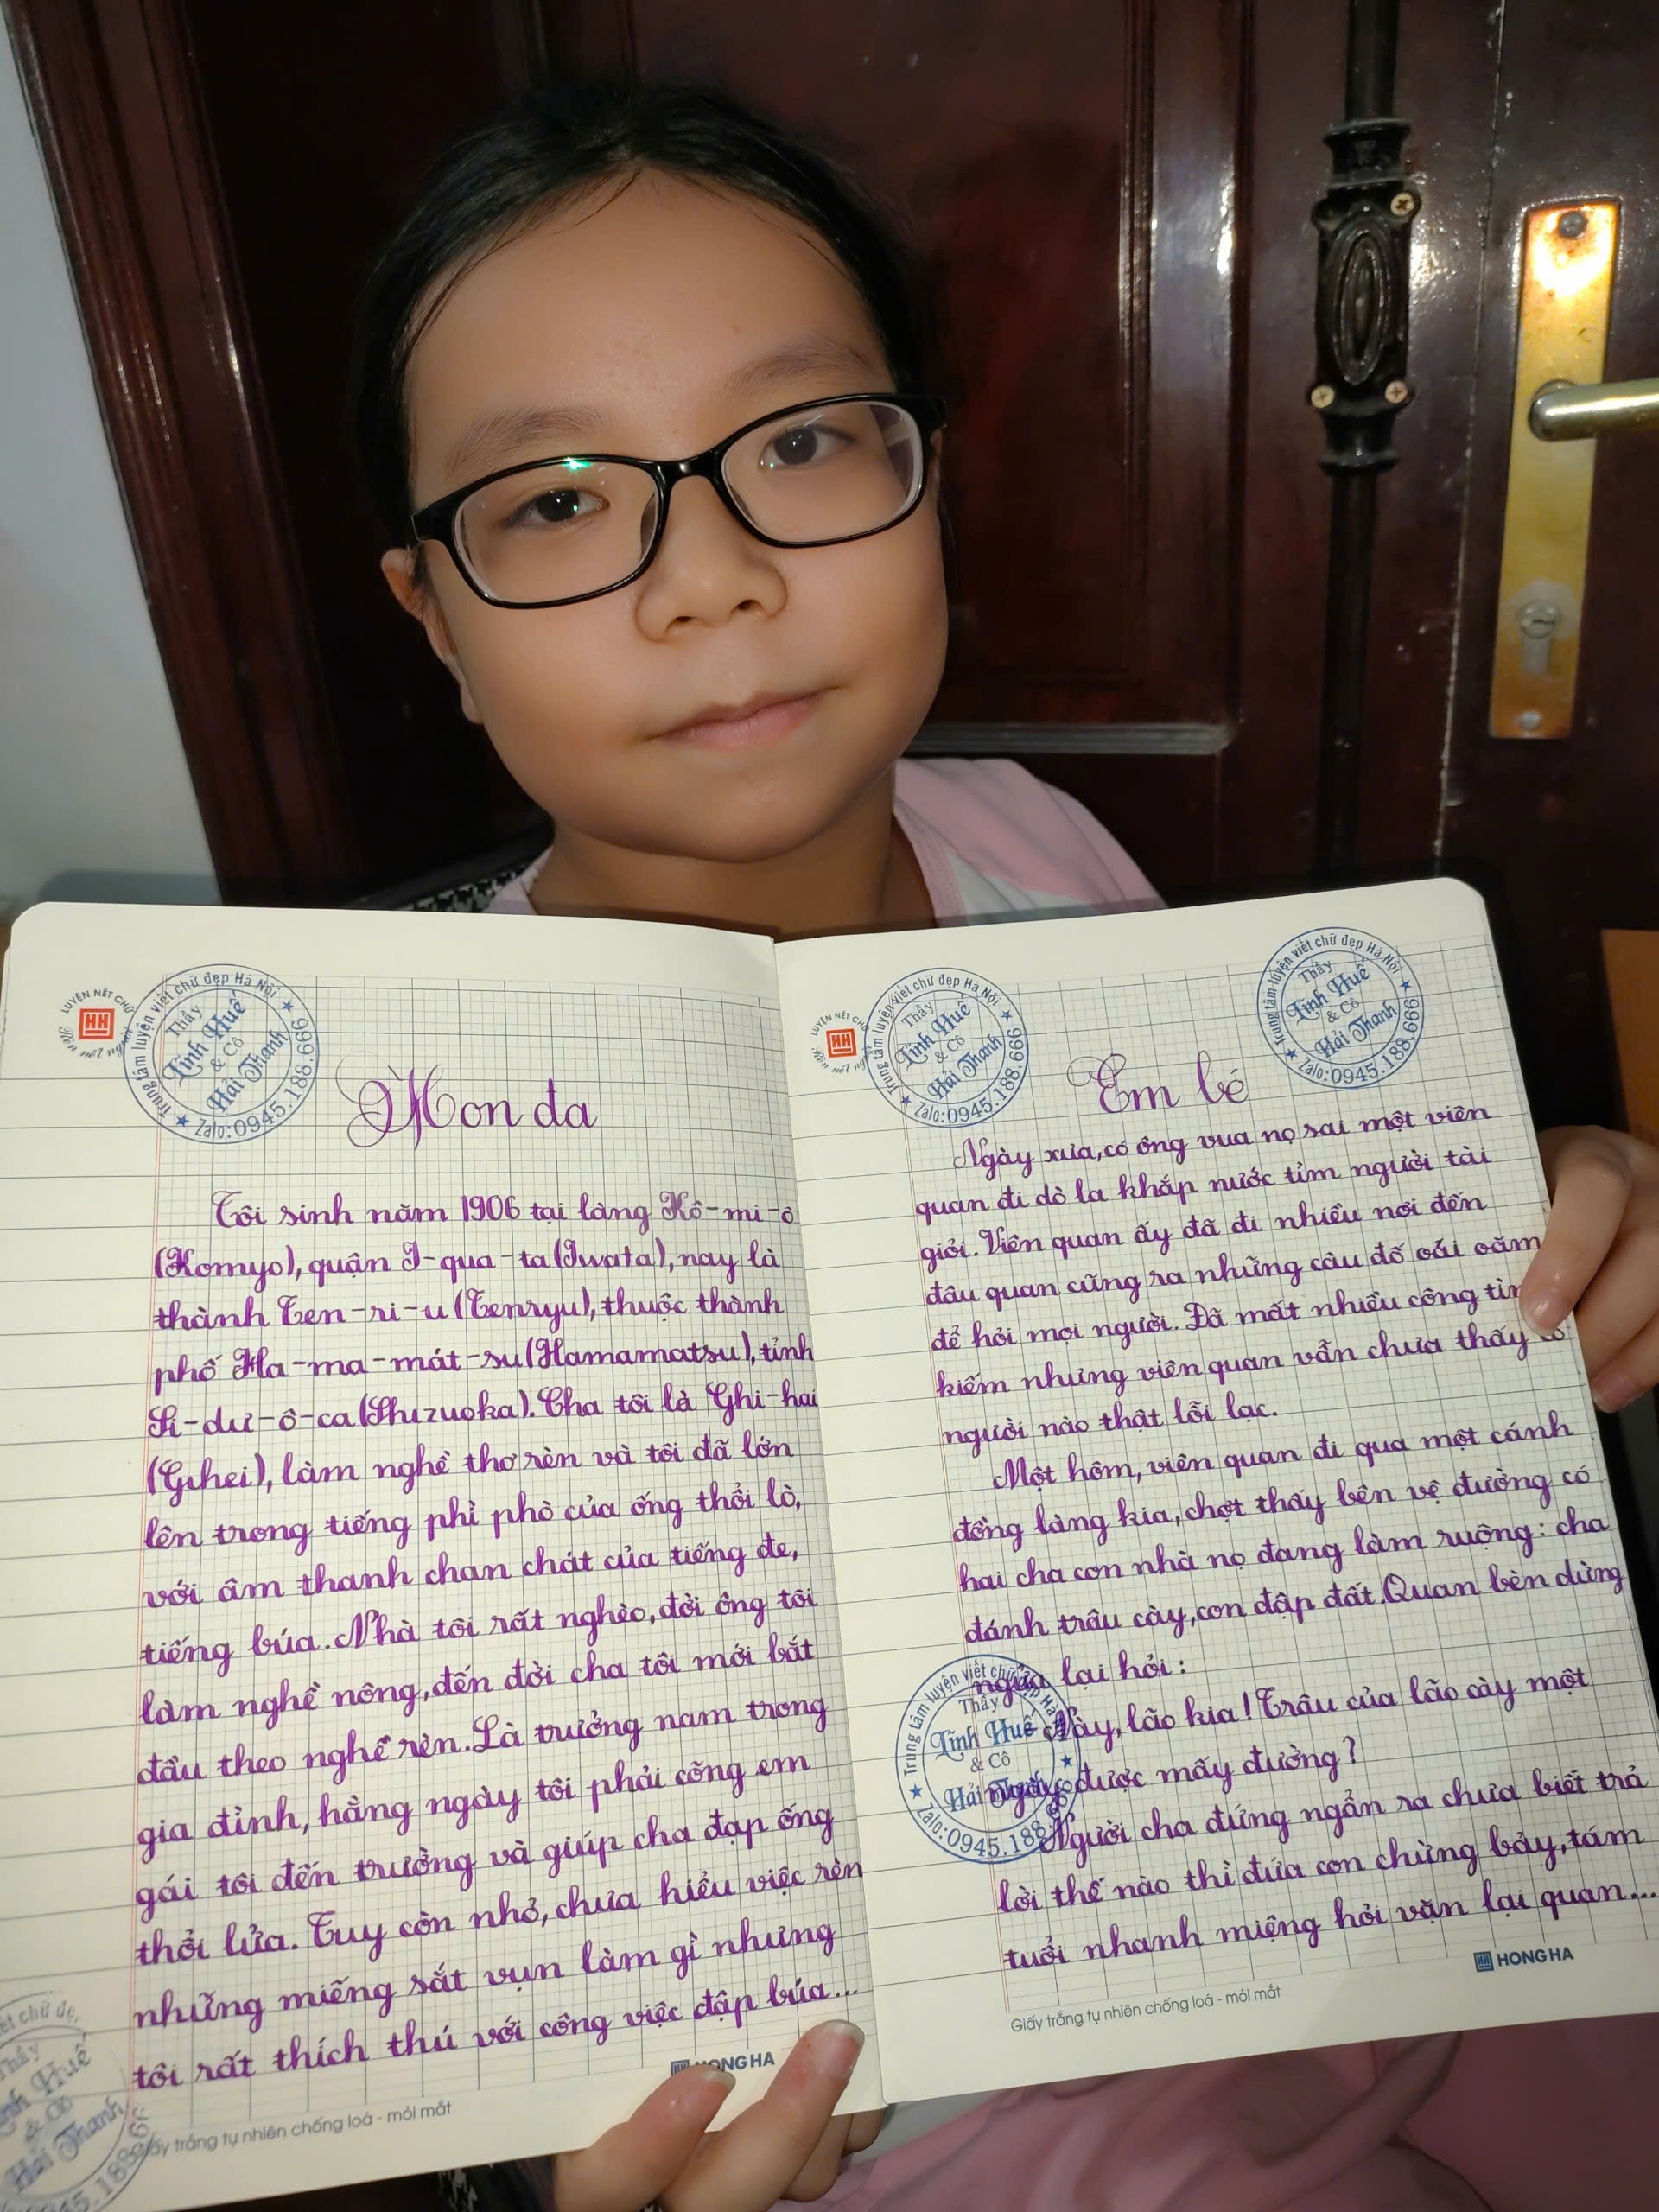 LUYỆN NÉT CHỮ
HH
Trung tâm luyện viết chữ đẹp Hà Nội
Thầy
Tĩnh Huế
& Cô
Hải Thanh
Zalo:0945.188.666
Hon da
Tôi sinh năm 1906 tại làng Kô-mi-ô
(Komyo), quận I-qua-ta (Iwata), nay là
thành Ten-ri-u (Tenryu), thuộc thành
phố Ha-ma-mát-su (Hamamatsu), tỉnh
Si-dư-ô-ca (Shizuoka). Cha tôi là Ghi-hai
(Gihei), làm nghề thợ rèn và tôi đã lớn
lên trong tiếng phì phò của ống thổi lò,
với âm thanh chan chát của tiếng đe,
tiếng búa. Nhà tôi rất nghèo, đời ông tôi
làm nghề nông, đến đời cha tôi mới bắt
đầu theo nghề rèn. Là trưởng nam trong
gia đình, hằng ngày tôi phải cõng em
gái tôi đến trường và giúp cha đạp ống
thổi lửa. Tuy còn nhỏ, chưa hiểu việc rèn
những miếng sắt vụn làm gì nhưng
tôi rất thích thú với công việc đập búa...
HONG HA
Giấy trắng tự nhiên chống loá - mỏi mắt
LUYỆN NÉT CHỮ
HH
Trung tâm luyện viết chữ đẹp Hà Nội
Thầy
Tĩnh Huế
& Cô
Hải Thanh
Zalo:0945.188.666
Trung tâm luyện viết chữ đẹp Hà Nội
Thầy
Tĩnh Huế
& Cô
Hải Thanh
Zalo:0945.188.666
Em bé
Ngày xưa, có ông vua nọ sai một viên
quan đi dò la khắp nước tìm người tài
giỏi. Viên quan ấy đã đi nhiều nơi đến
đâu quan cũng ra những câu đố oái oăm
để hỏi mọi người. Đã mất nhiều công tìm
kiếm nhưng viên quan vẫn chưa thấy có
người nào thật lỗi lạc.
Một hôm, viên quan đi qua một cánh
đồng làng kia, chợt thấy bên vệ đường có
hai cha con nhà nọ đang làm ruộng: cha
đánh trâu cày, con đập đất. Quan bèn dừng
ngựa lại hỏi:
Này, lão kia! Trâu của lão cày một
ngày được mấy đường?
Người cha đứng ngẩn ra chưa biết trả
lời thế nào thì đứa con chừng bảy, tám
tuổi nhanh miệng hỏi vặn lại quan...
Trung tâm luyện viết chữ đẹp Hà
Thầy
Tĩnh Huế
& Cô
Hải
Zalo:0945.188
HONG HA
Giấy trắng tự nhiên chống loá - mỏi mắt